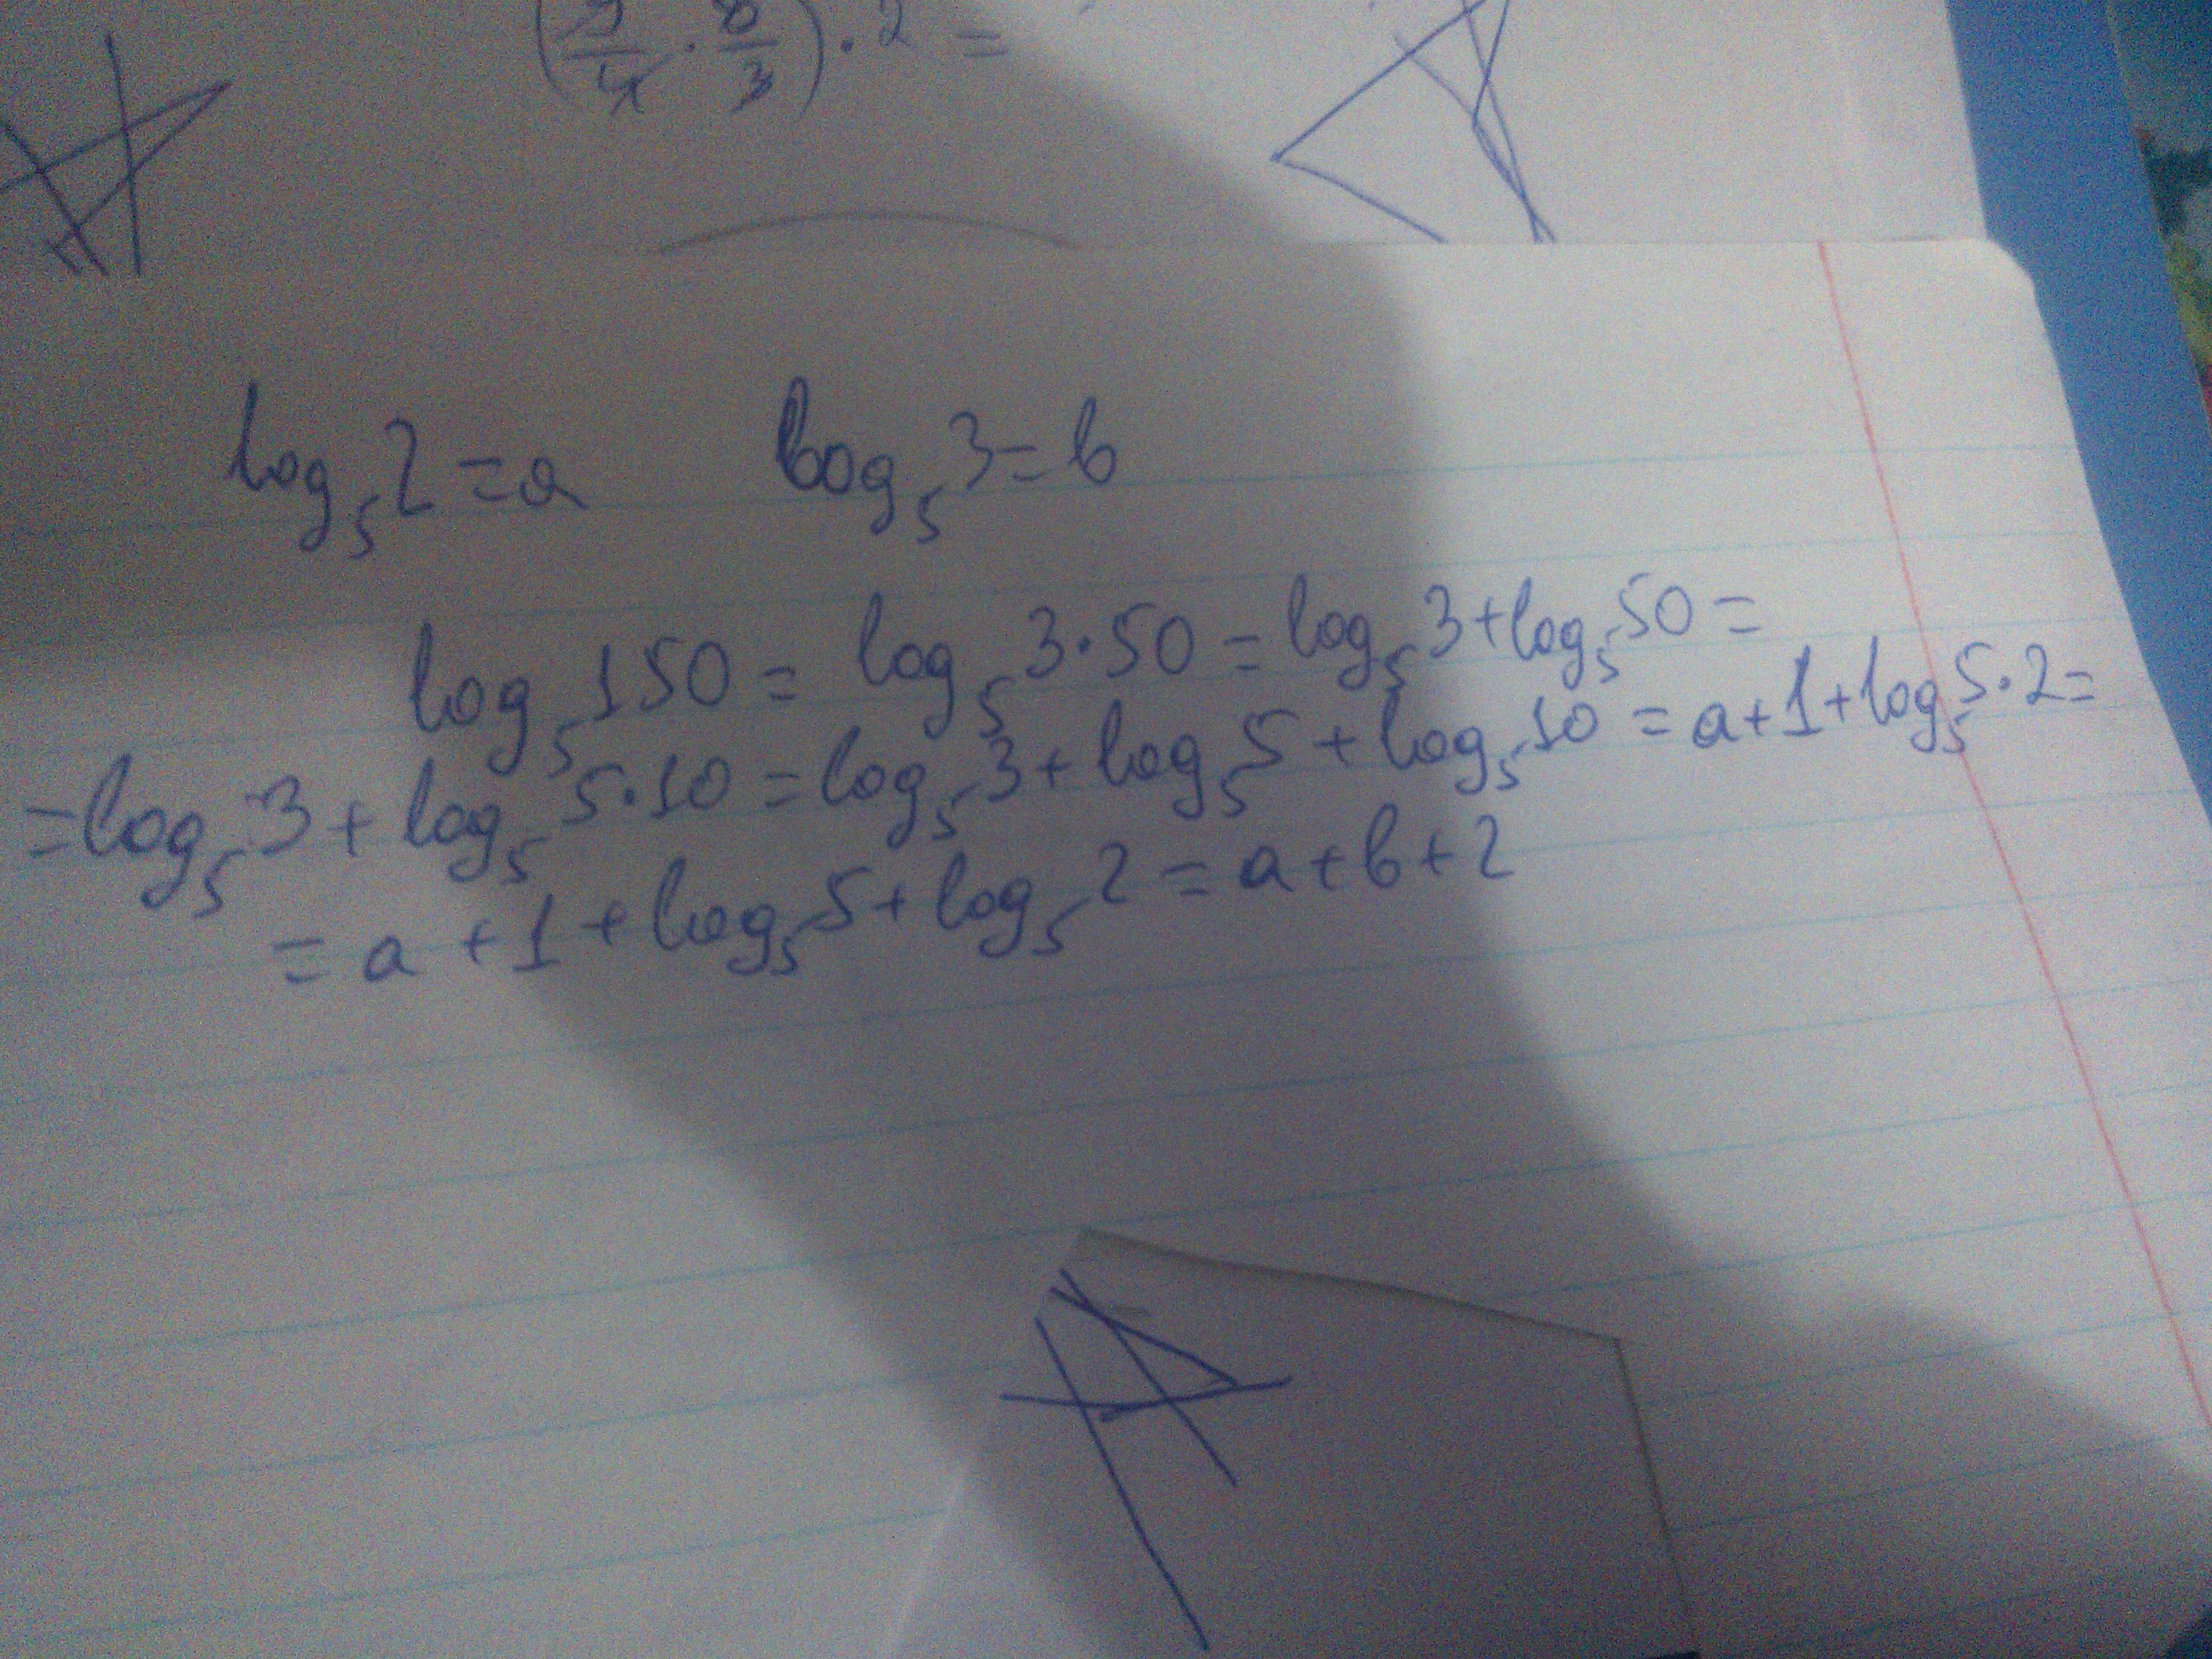 · 2 =
log₅2=a log₅3=b
log₅150 = log₅3·50 = log₅3+log₅50 =
=log₅3 + log₅5·10 = log₅3 + log₅5 + log₅10 = a+1+log₅5·2=
= a + 1 + log₅5 + log₅2 = a+b+2